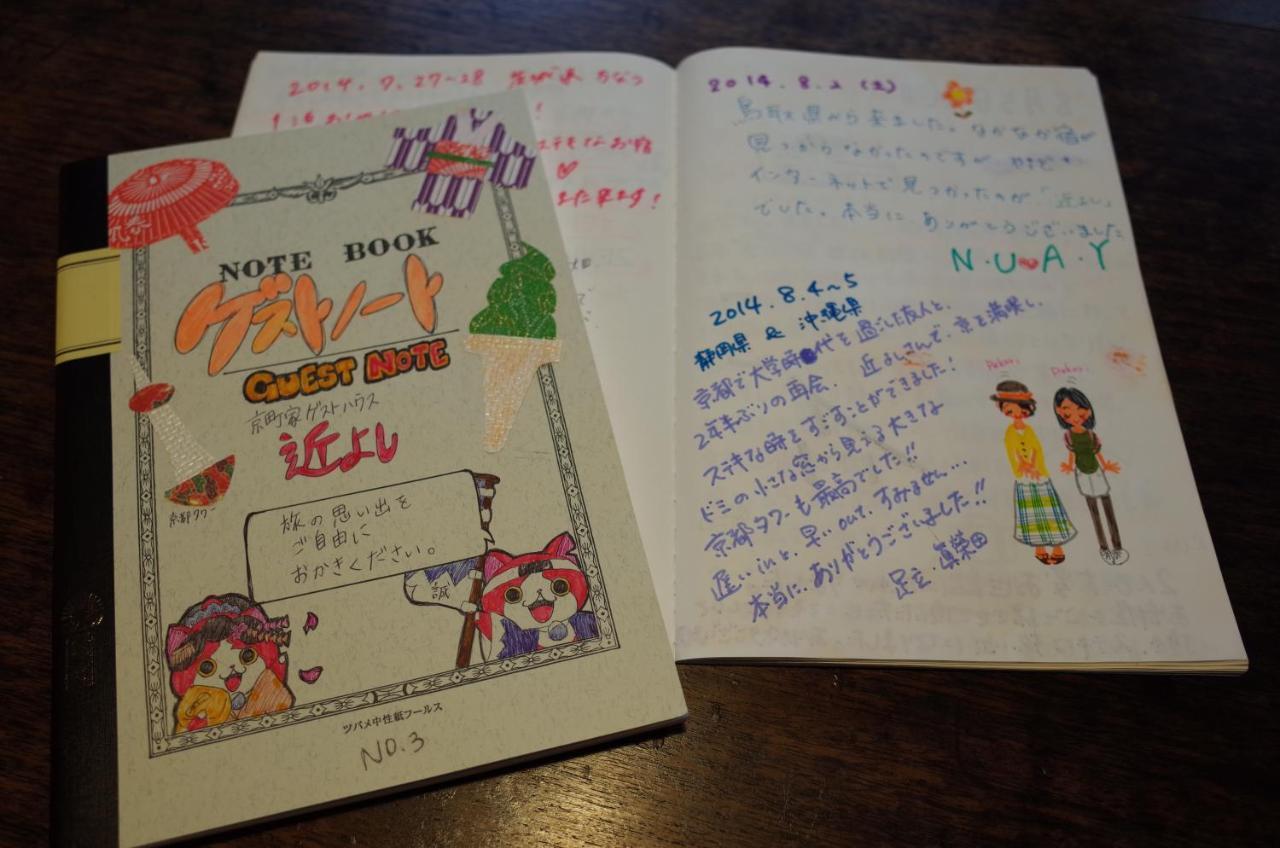 NOTE BOOK
ゲストノート
GUEST NOTE
京町家ゲストハウス
近よし
京都タワー
旅の思い出を
ご自由に
おかきください。
誠
ツバメ中性紙フールス
NO.3
2014.7.27~28
!
ステキなお宿
また来ます!
2014.8.2 (土)
鳥取県から来ました。なかなか宿が
見つからなかったのですが やっと
インターネットで見つかったのが「近よし」
でした。本当に ありがとうございました
N・U・A・Y
2014.8.4~5
静岡県 & 沖縄県
京都で大学時代を過ごした友人と、
2年半ぶりの再会。近よしさんで、京を満喫し、
ステキな時をすごすことができました!
ドミの小さな窓から見える大きな
京都タワーも最高でした!!
遅いinと、早いout、すみません...
本当にありがとうございました!!
足立・真栄田
Pekori
Pekori